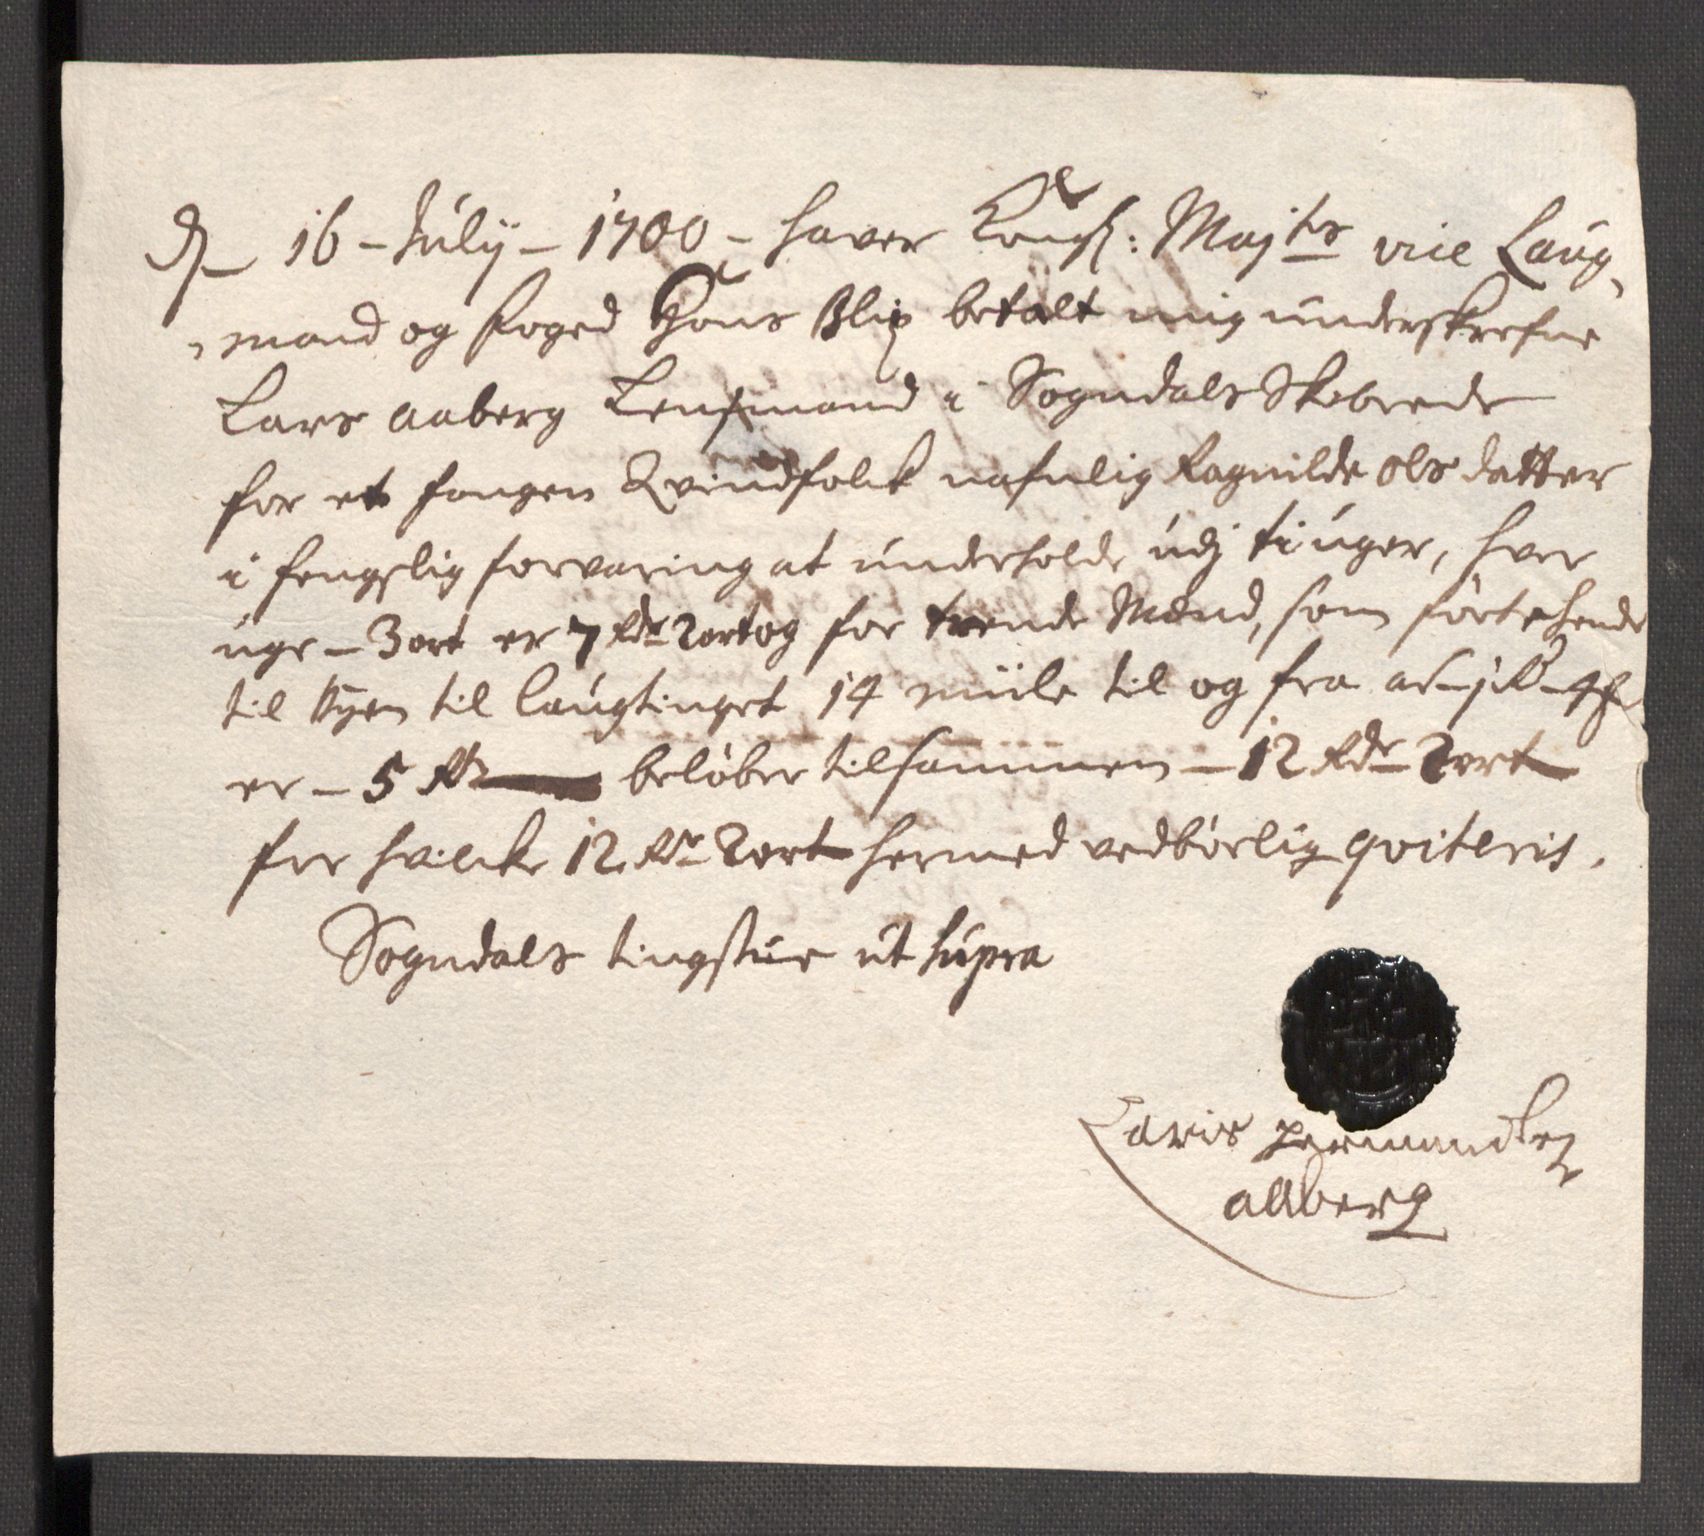 d 16 - Julij - 1700 - haver Kongl: Majts vice Laug,
,mand og foged Hans Blix betalt mig underskrefne
Lars Aaberg Lensmand i Sogndals Skibrede
for et fangen Qvindfolck nafnlig Ragnilde Ols datter
i fengslig forvaring at underholde udj ti uger, hver
uge - 3 ort er 7 Rdr 2 ort og for trende Mænd, som førte hende
til Byen til laugtinget 14 miile til og fra
er - 5 Rdr beløber tilsammen - 12 Rdr 2 ort
for hvilcke 12 Rdr 2 ort hermed vedbørlig qviteris.
Sogndals tingstue ut supra
Laris
aaberg